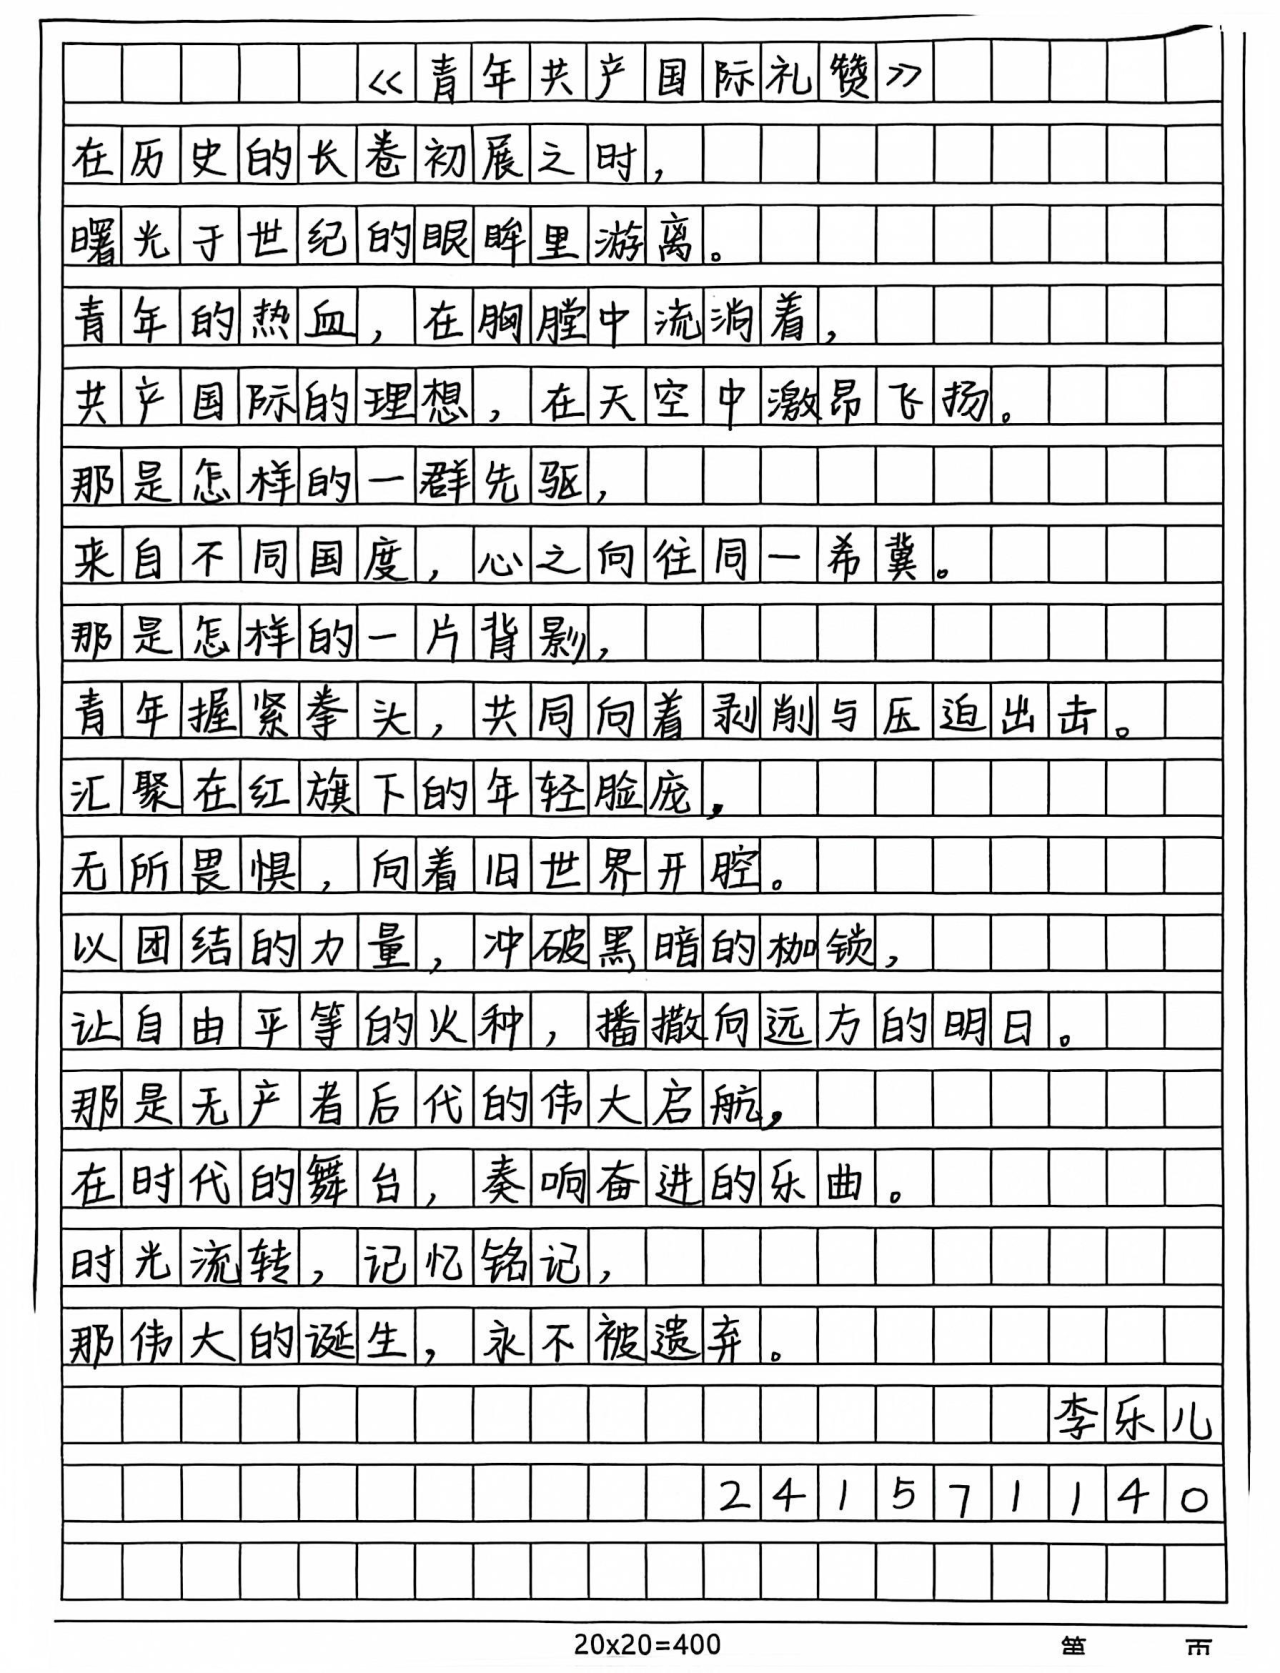 《青年共产国际礼赞》
在历史的长卷初展之时，
曙光于世纪的眼眸里游离。
青年的热血，在胸膛中流淌着，
共产国际的理想，在天空中激昂飞扬。
那是怎样的一群先驱，
来自不同国度，心之向往同一希冀。
那是怎样的一片背影，
青年握紧拳头，共同向着剥削与压迫出击。
汇聚在红旗下的年轻脸庞，
无所畏惧，向着旧世界开腔。
以团结的力量，冲破黑暗的枷锁，
让自由平等的火种，播撒向远方的明日。
那是无产者后代的伟大启航，
在时代的舞台，奏响奋进的乐曲。
时光流转，记忆铭记，
那伟大的诞生，永不被遗弃。
李乐儿
241571140
20x20=400 第 页